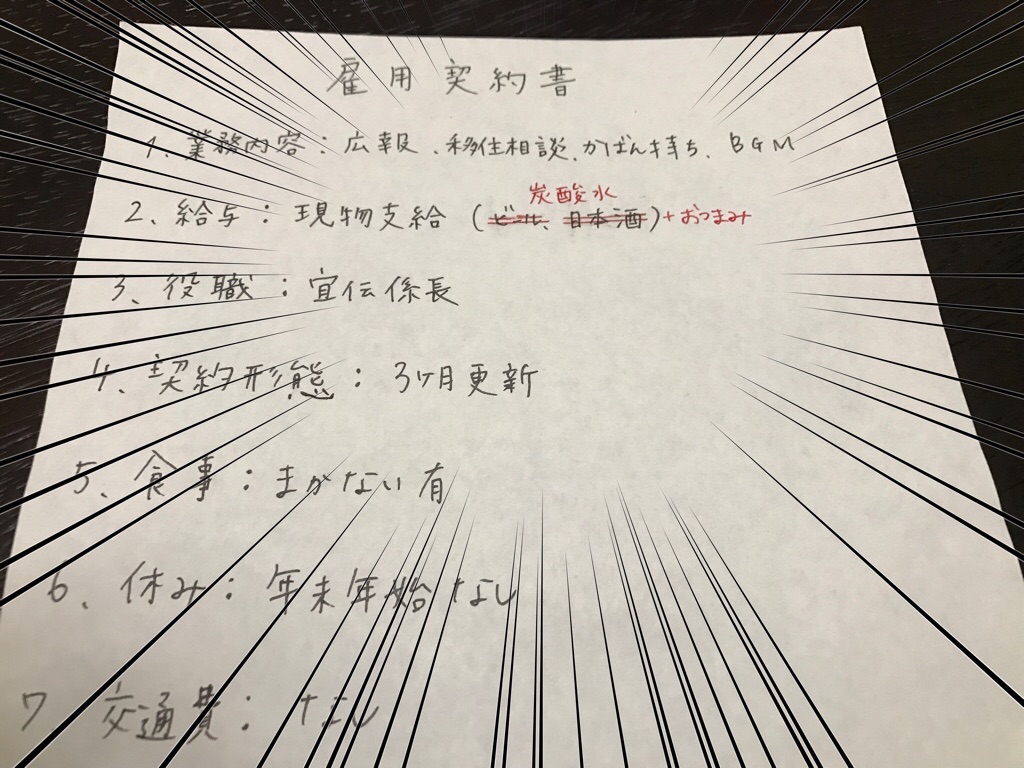 雇用契約書
1、業務内容：広報、移住相談、かばん持ち、BGM
炭酸水
2、給与：現物支給（ビール、日本酒）+おつまみ
3、役職：宣伝係長
4、契約形態：3ヶ月更新
5、食事：まかない有
6、休み：年末年始なし
7 交通費：なし